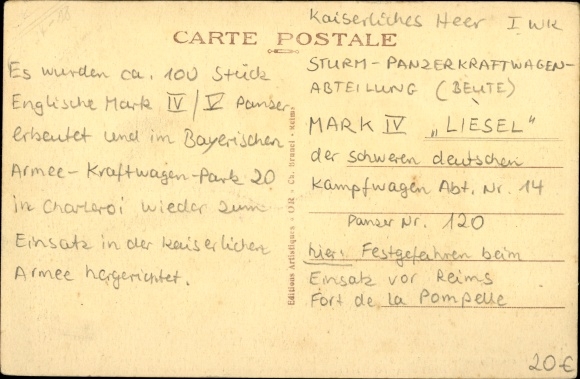 Kaiserliches Heer I WK
CARTE POSTALE
Es wurden ca. 100 Stück
Englische Mark IV/V Panzer
erbeutet und im Bayerischen
Armee-Kraftwagen-Park 20
in Charleroi wieder zum
Einsatz in der kaiserlichen
Armee hergerichtet.
Editions Artistiques " OR " Ch. Brunel - Reims
STURM-PANZERKRAFTWAGEN-
ABTEILUNG (BEUTE)
MARK IV „LIESEL"
der schweren deutschen
Kampfwagen Abt. Nr. 14
Panzer Nr. 120
hier: Festgefahren beim
Einsatz vor Reims
Fort de la Pompelle
20€